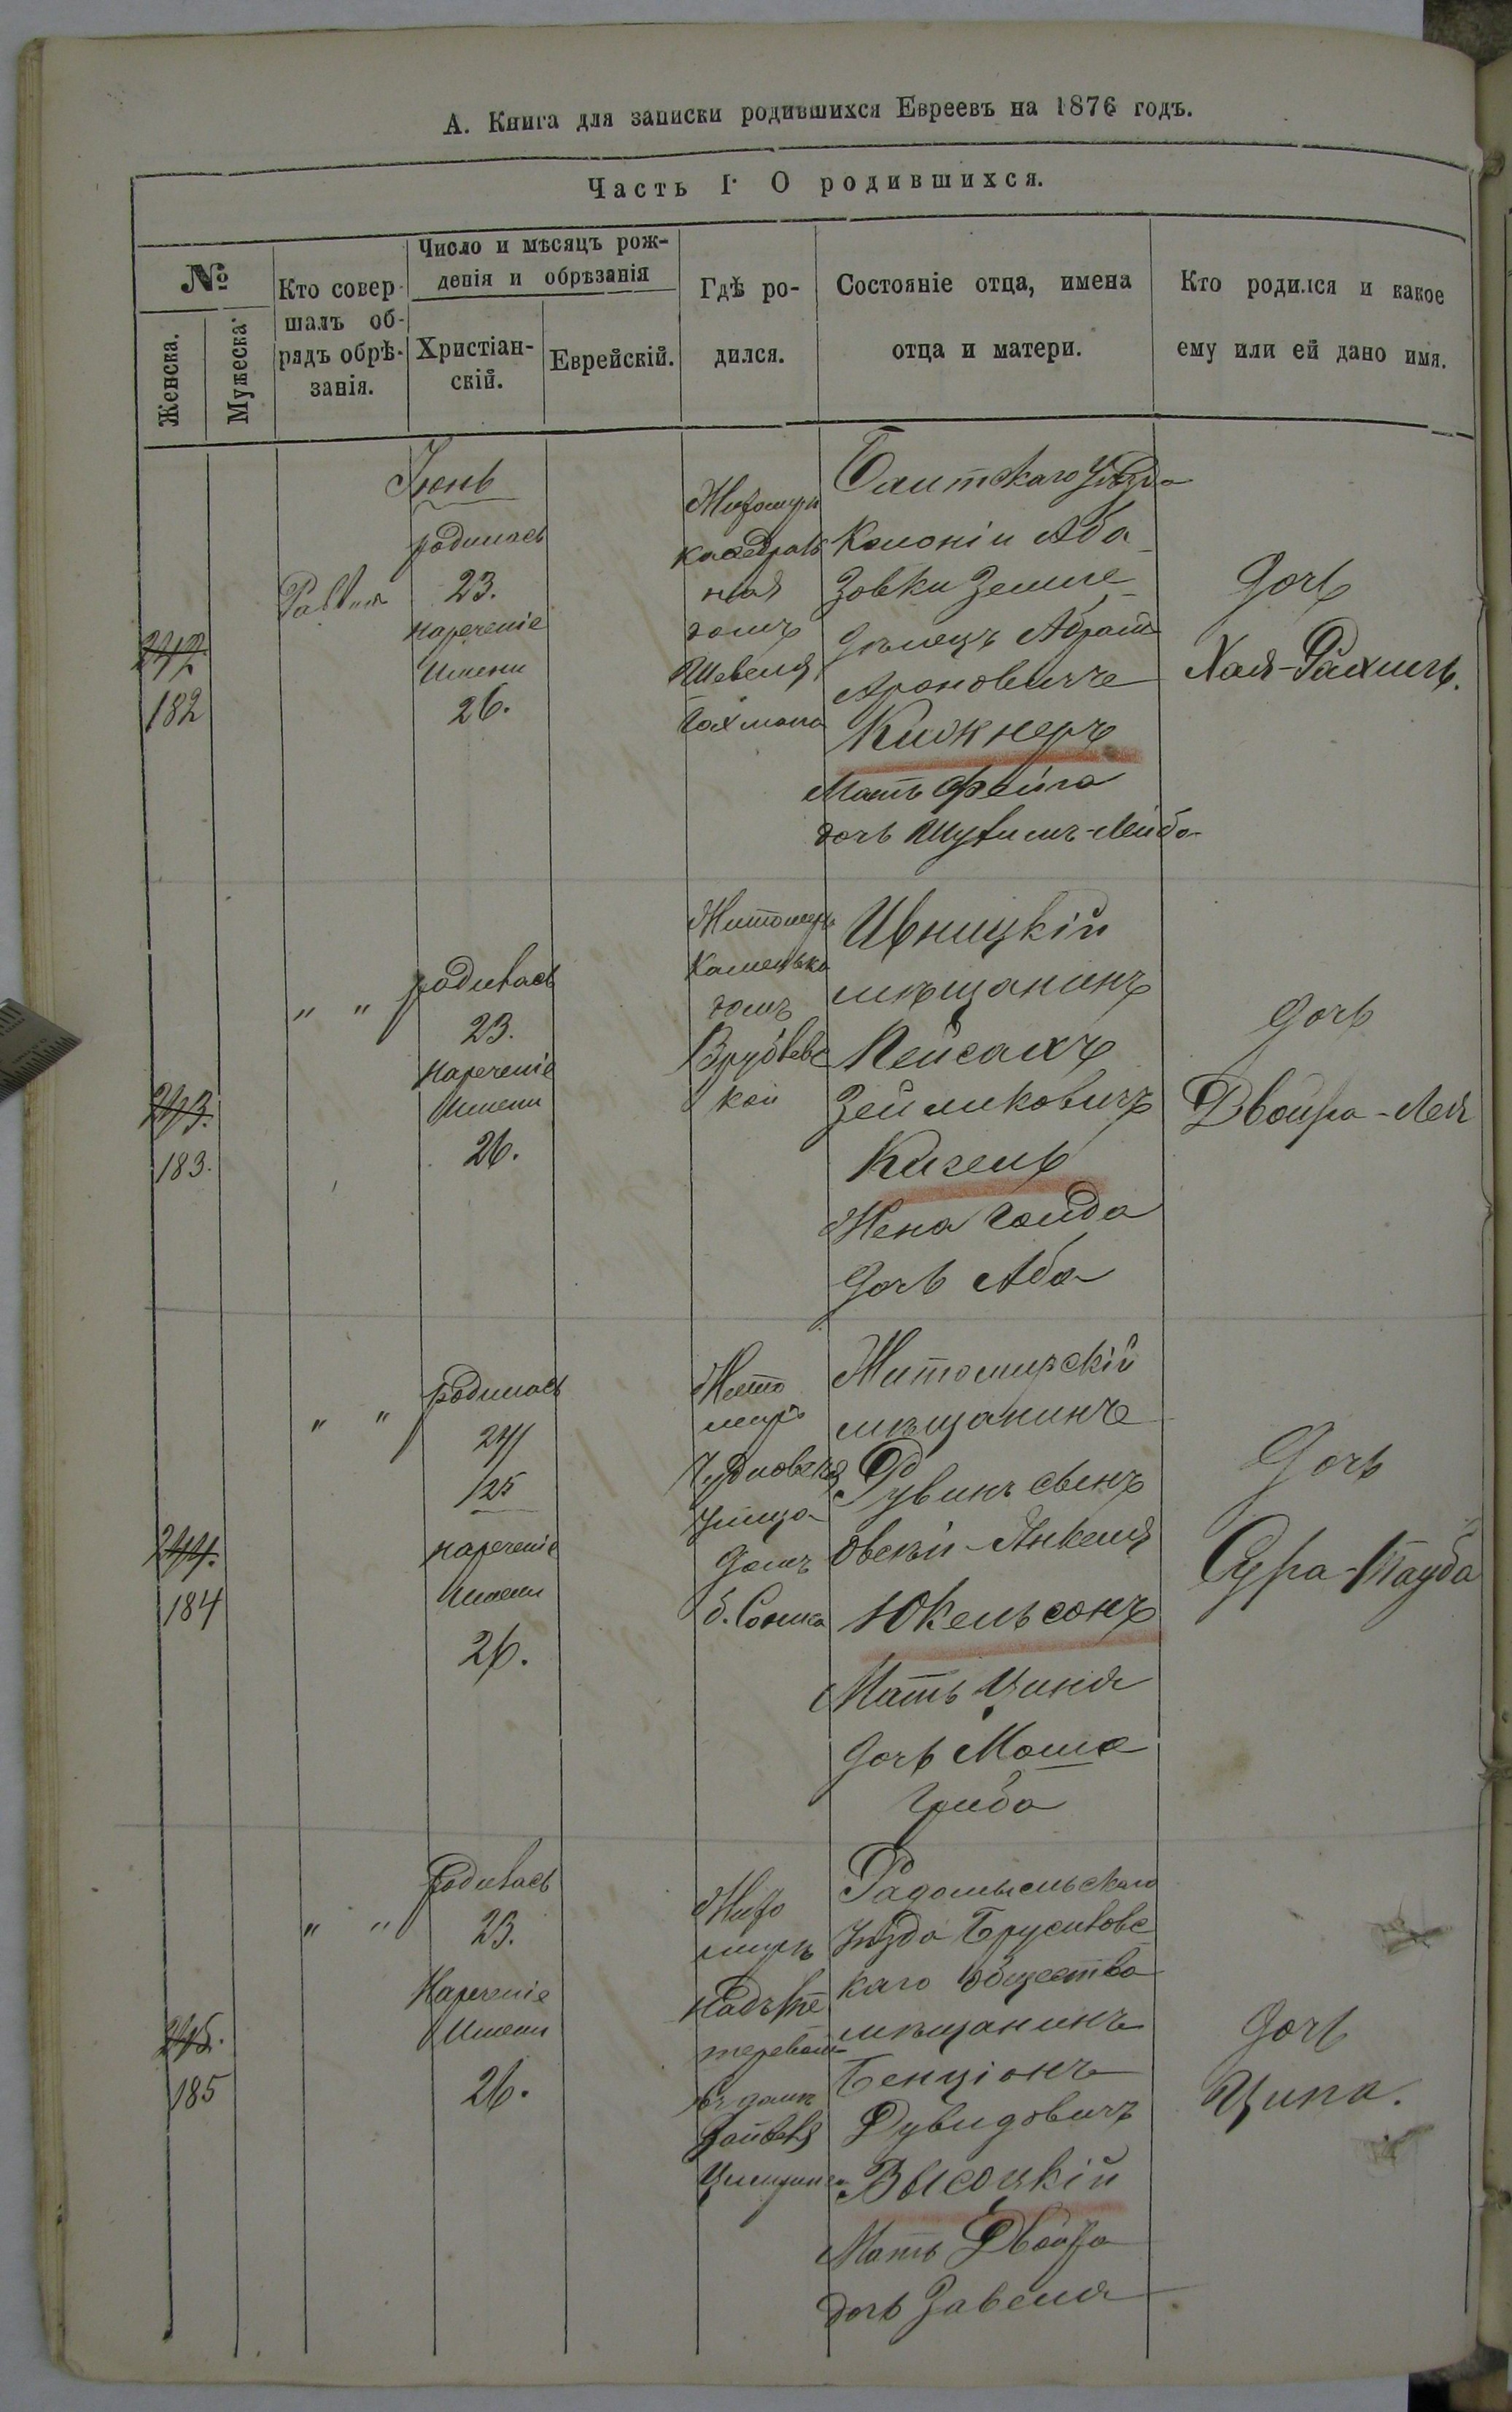 А. Книга для записки родившихся Евреевъ на 1876 годъ.
Часть I. О родившихся.
№
Женска.
Мужеска.
Кто совер-
шалъ об-
рядъ обрѣ-
занія.
Число и мѣсяцъ рож-
денія и обрѣзанія
Христіан-
скій.
Еврейскій.
Гдѣ ро-
дился.
Состояніе отца, имена
отца и матери.
Кто родился и какое
ему или ей дано имя.
242
182
Іюнь
родилась
23.
нареченіе
имени
26.
Житомиръ
кафедраль
ная
домъ
Шевеля
Балтскаго уѣзда
Колоніи Аба
зовки Земле-
дѣлецъ Абрамъ
Ароновичъ
Мать Фейга
дочь
Дочь
Хая-Рахиль.
243.
183.
" "
родилась
23.
нареченіе
имени
26.
Житомиръ
домъ
Врублевс
кой
Ивницкій
мѣщанинъ
Пейсахъ
Зейликовичъ
Кизель
Жена
Дочь Аба
Дочь
Двойра-Лея
244.
184
" "
родилась
24/
/25
нареченіе
имени
26.
Жито
миръ
Чудновская
улица
домъ
Житомирскій
мѣщанинъ
Рувинъ сынъ
Янкеля
Юкельсонъ
Мать Циня
Дочь Мошя
Дочь
Сура-Тауба
245.
185
" "
родилась
23.
Нареченіе
имени
26.
Жито
миръ
надъ Ке
теревомъ
въ домѣ
Радомысльскаго
уѣзда Брусиловс
каго общества
мѣщанинъ
Бенціонъ
Дувидовичъ
Высоцкій
Мать Двойра
дочь Завеля
Дочь
Ципа.